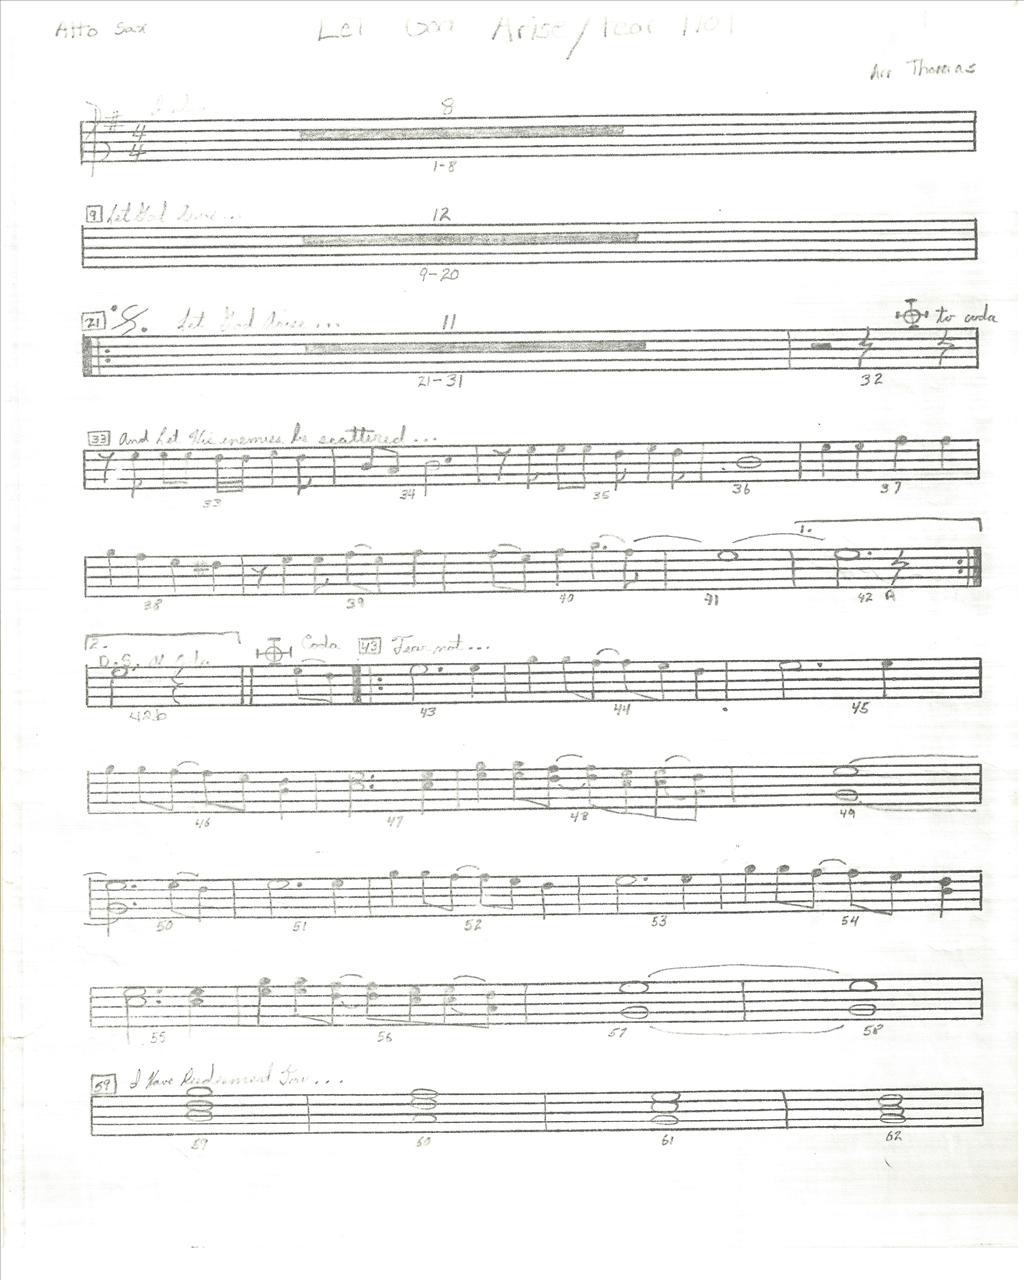 Alto Sax
Let God Arise/Fear Not
Arr Thomas
4
4
8
1-8
9 Let God Arise...
12
9-20
21 Let God Arise...
11
to coda
21-31
32
33 And Let His enemies be scattered...
33
34
35
36
37
1.
38
39
40
41
42 A
2.
D.S. al Coda
Coda
43 Fear not...
42b
43
44
45
46
47
48
49
50
51
52
53
54
55
56
57
58
59 I Have Redeemed You...
59
60
61
62